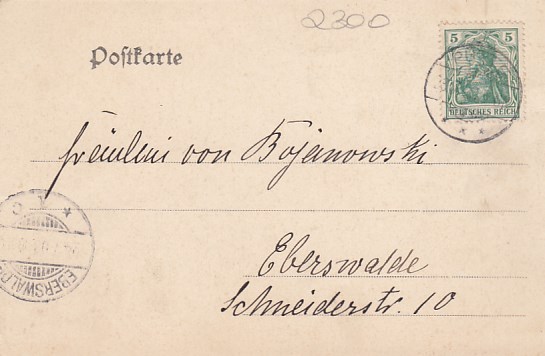 2300
Postkarte
5 5
DEUTSCHES REICH
Fräulein von Bojanowski
Eberswalde
Schneiderstr. 10
EBERSWALDE